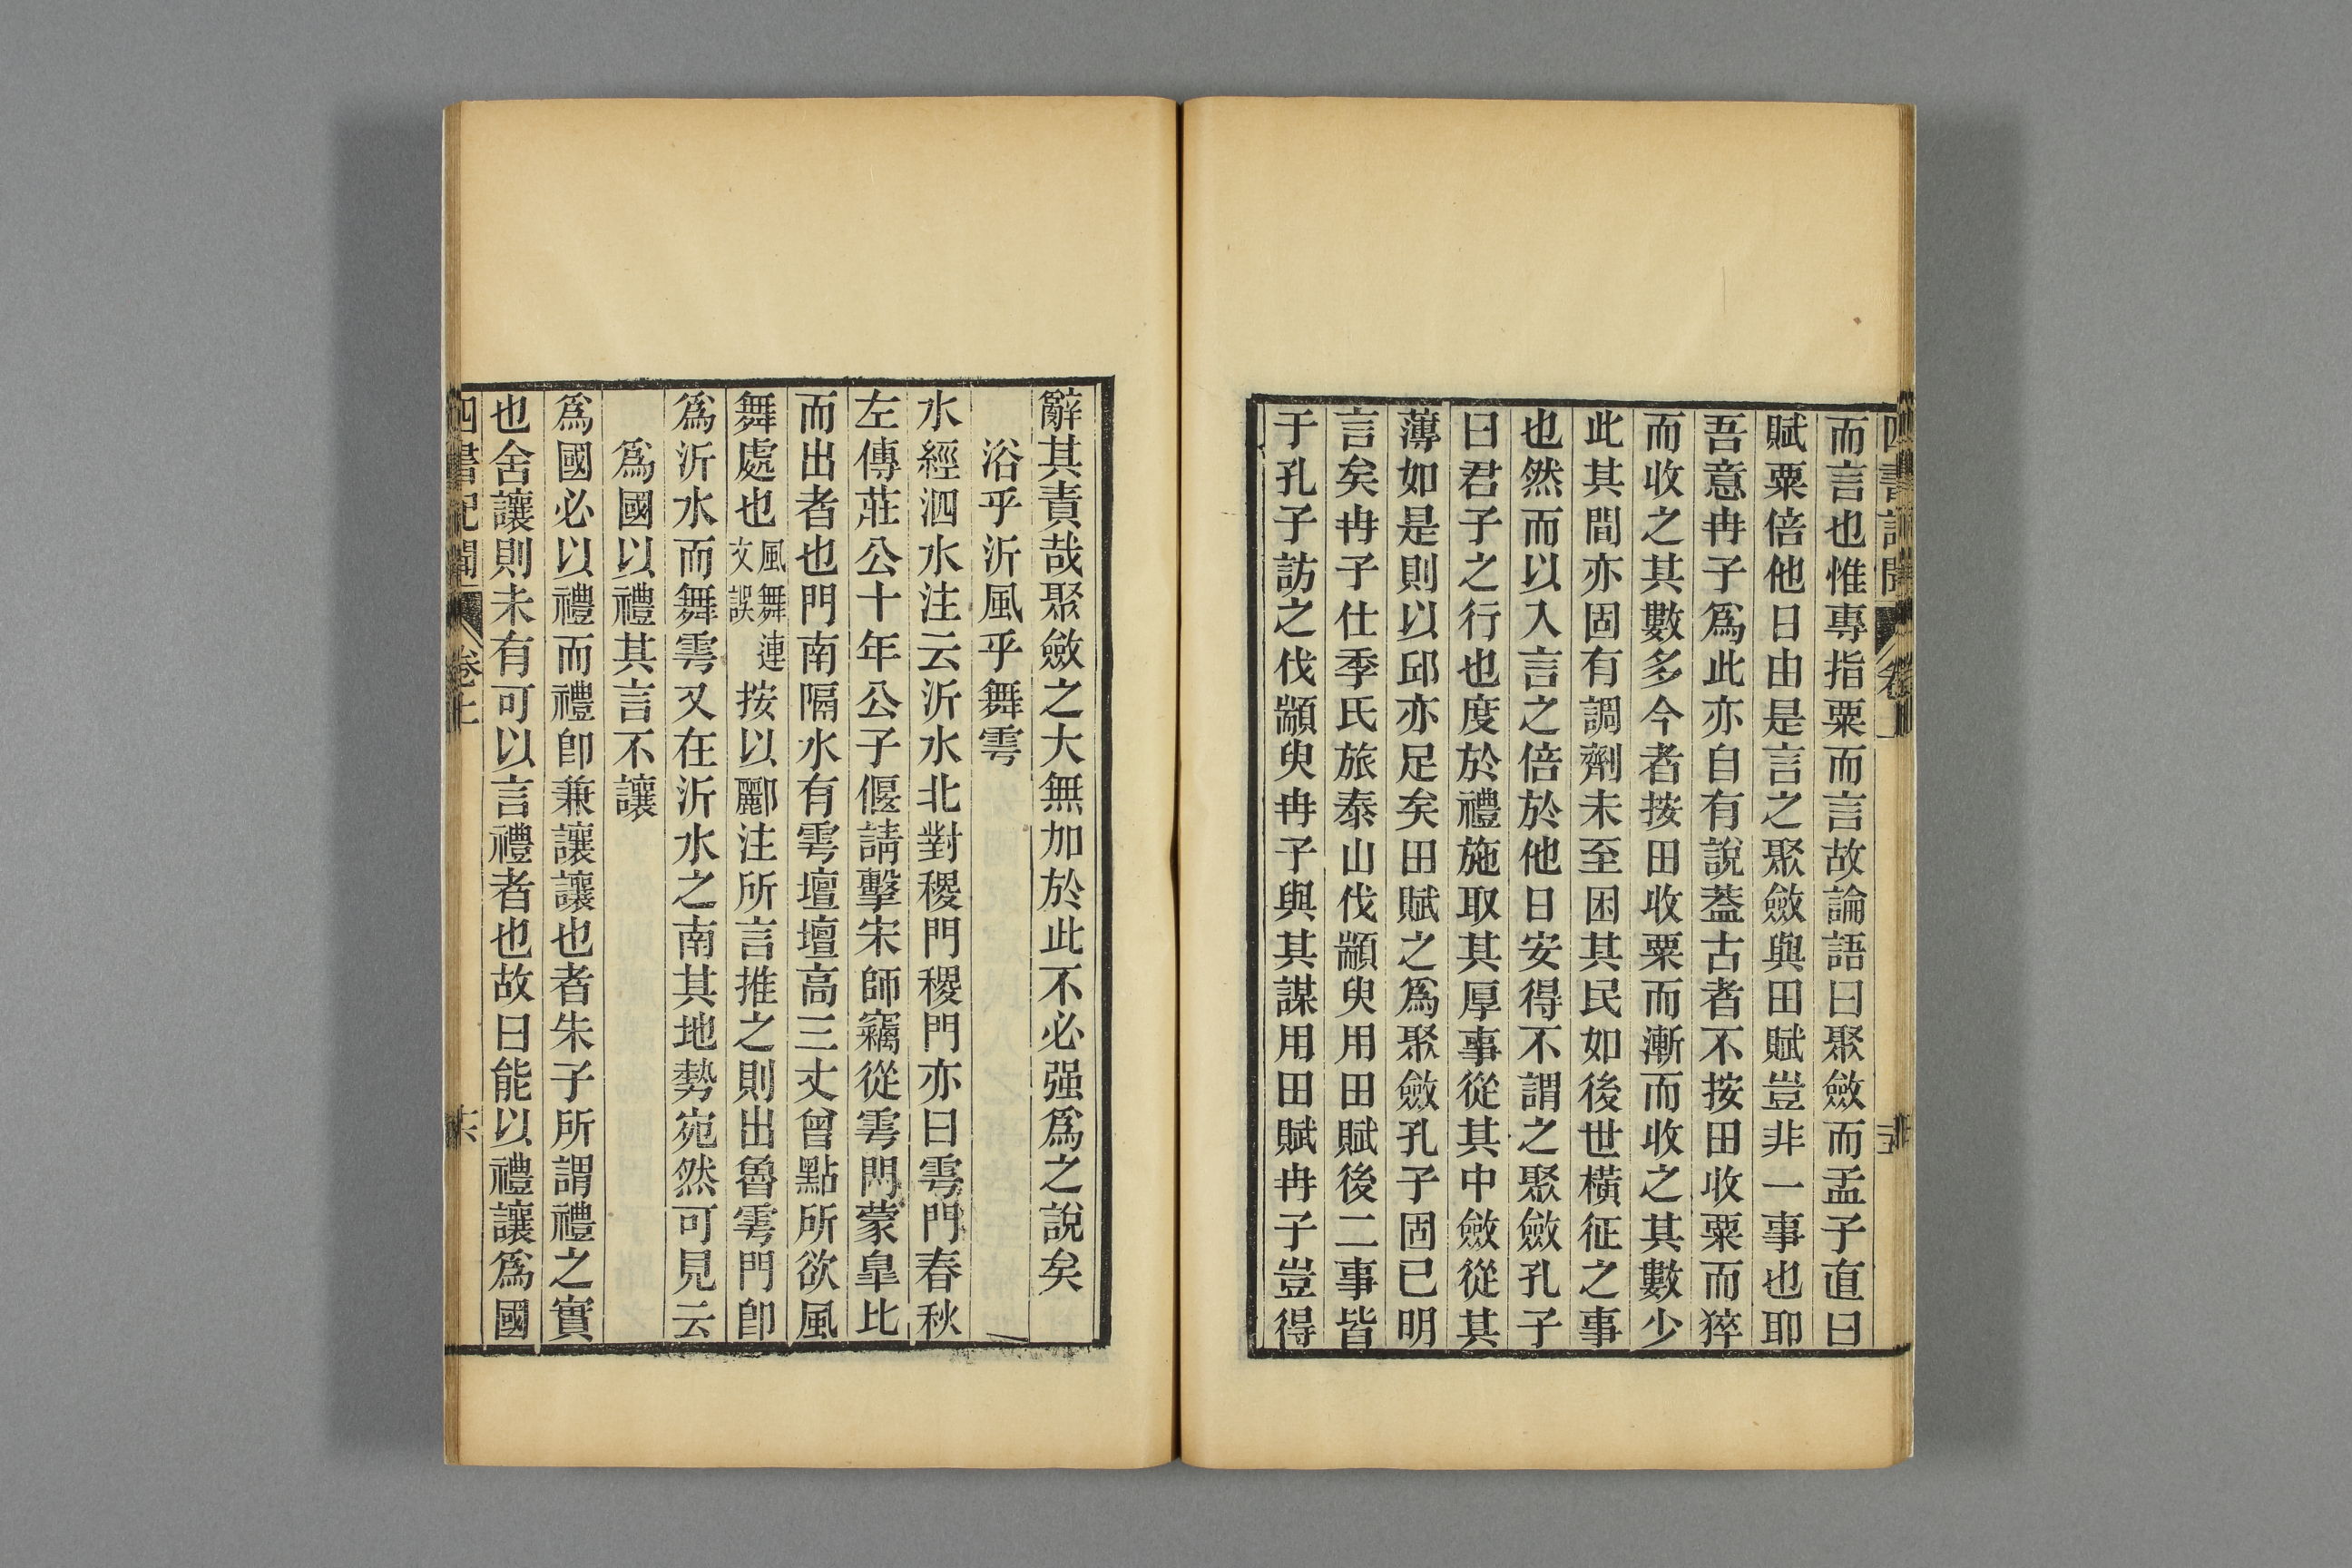 而言也惟專指粟而言故論語曰聚斂而孟子直曰
賦粟倍他日由是言之聚斂與田賦豈非一事也耶
吾意冉子爲此亦自有說蓋古者不按田收粟而猝
而收之其數多今者按田收粟而漸而收之其數少
此其間亦固有調劑未至困其民如後世橫征之事
也然而以入言之倍於他日安得不謂之聚斂孔子
曰君子之行也度於禮施取其厚事從其中斂從其
薄如是則以邱亦足矣田賦之爲聚斂孔子固已明
言矣冉子仕季氏旅泰山伐顓臾用田賦後二事皆
于孔子訪之伐顓臾冉子與其謀用田賦冉子豈得
辭其責哉聚斂之大無加於此不必强爲之說矣
浴乎沂風乎舞雩
水經泗水注云沂水北對稷門稷門亦曰雩門春秋
左傳莊公十年公子偃請擊宋師竊從雩門蒙皐比
而出者也門南隔水有雩壇壇高三丈曾點所欲風
舞處也風舞連文誤按以酈注所言推之則出魯雩門卽
爲沂水而舞雩又在沂水之南其地勢宛然可見云
爲國以禮其言不讓
爲國必以禮而禮卽兼讓讓也者朱子所謂禮之實
也舍讓則未有可以言禮者也故曰能以禮讓爲國
四書記聞 卷上